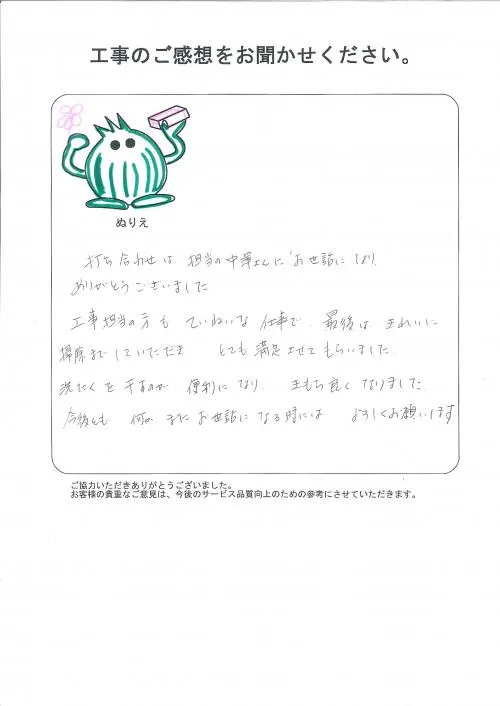 工事のご感想をお聞かせください。
ぬりえ
打ち合わせは 担当の中澤さんに お世話になり
ありがとうございました
工事担当の方も ていねいな 仕事で、最後は きれいに
掃除までしていただき とても 満足させてもらいました。
洗たくを干すのが 便利になり、 も良く なりました。
今後とも 何か お世話になる時には よろしくお願いします
ご協力いただきありがとうございました。
お客様の貴重なご意見は、今後のサービス品質向上のための参考にさせていただきます。